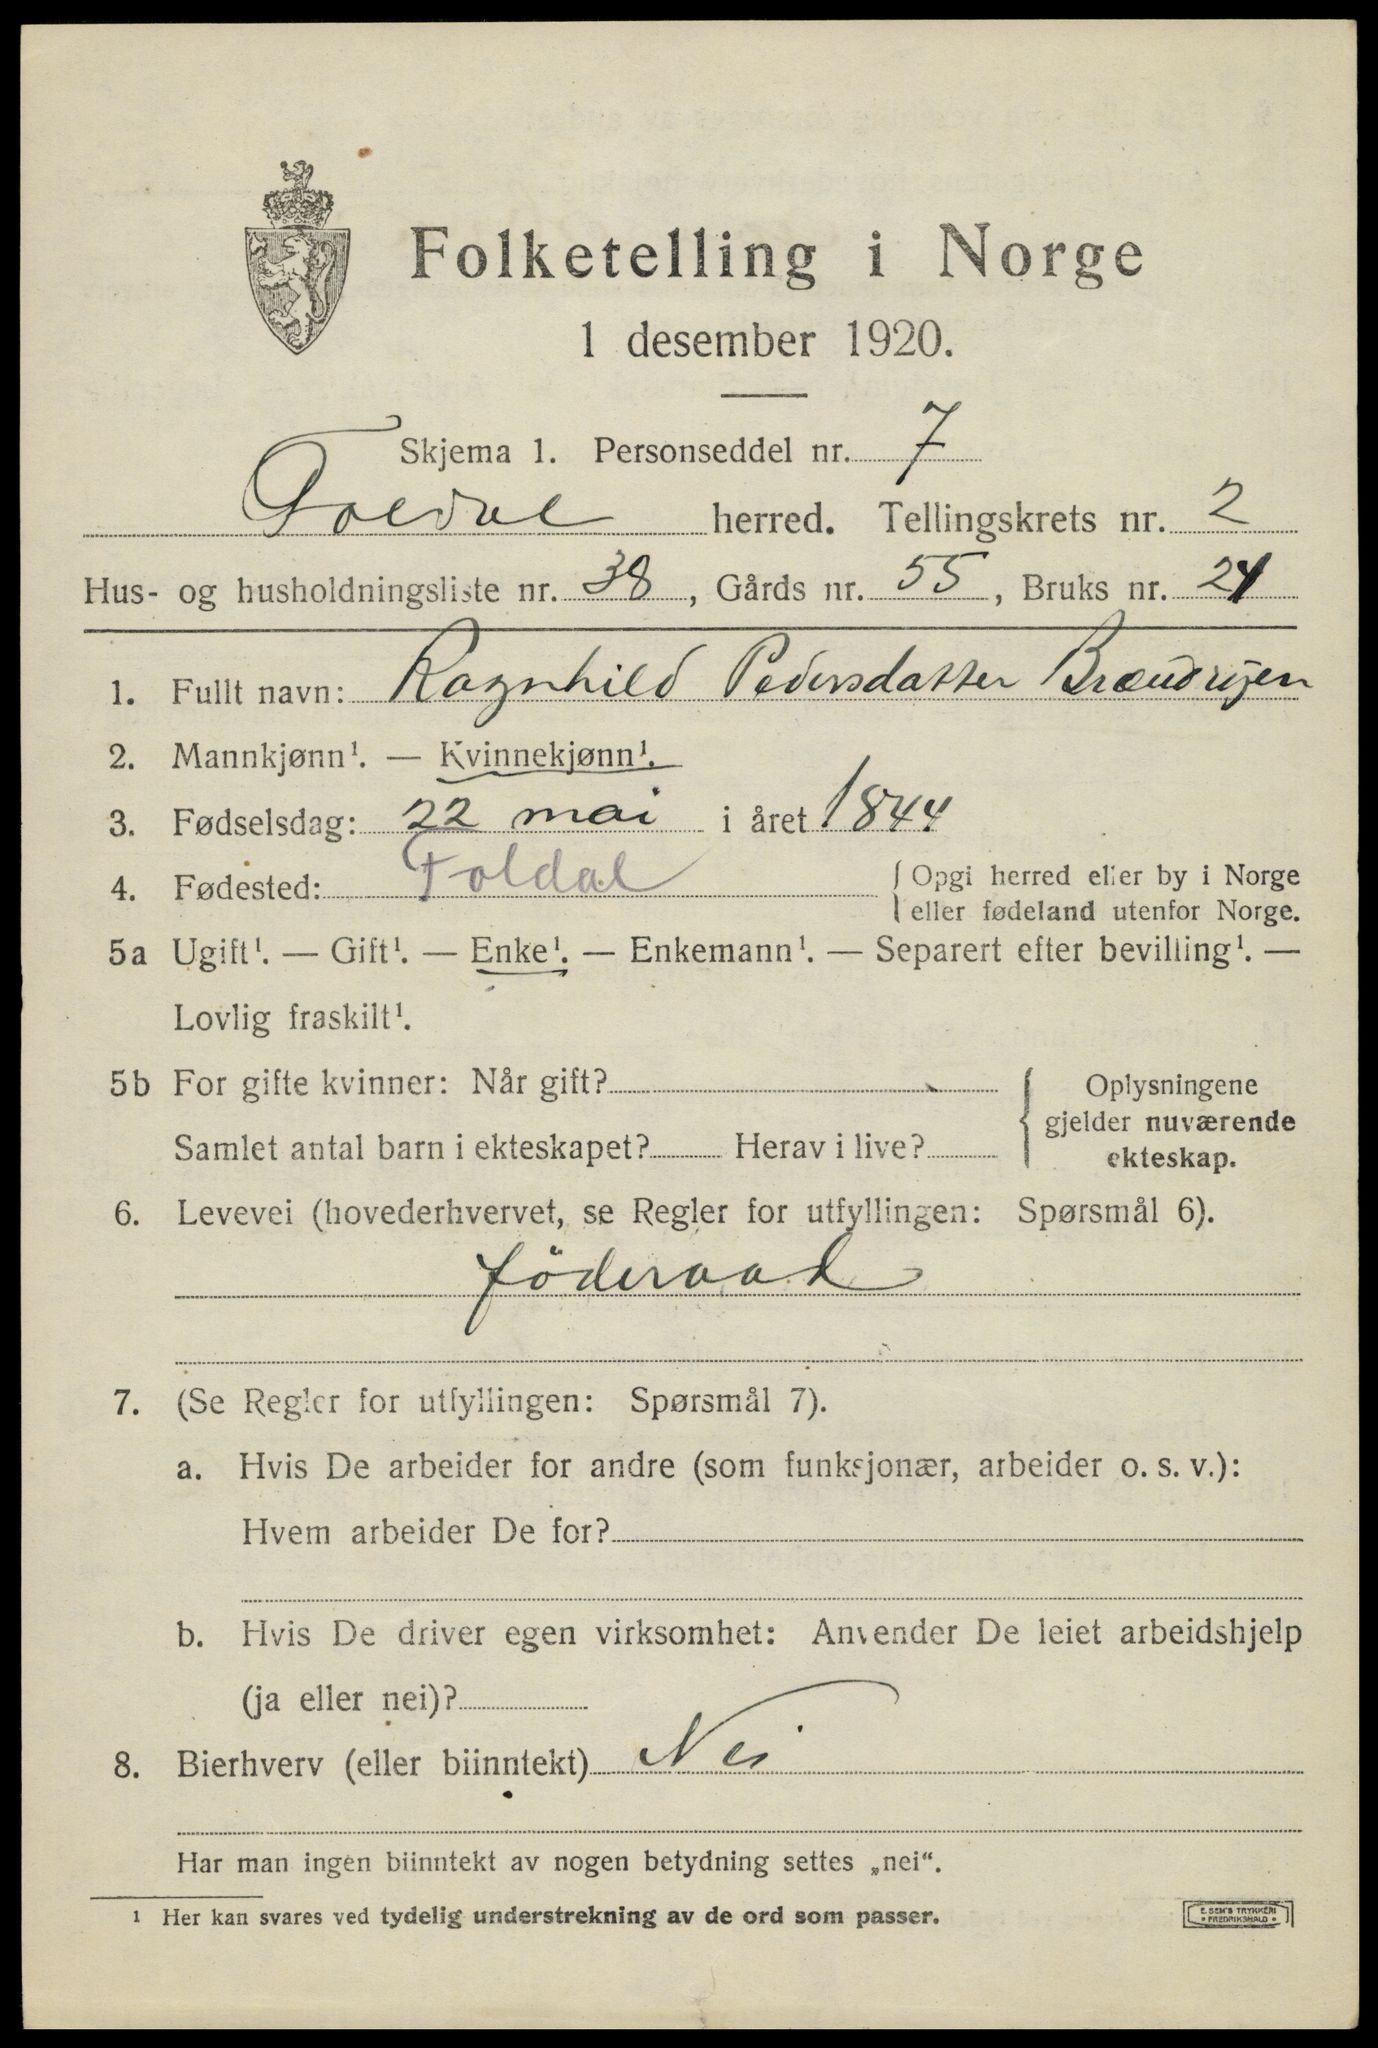 Folketelling i Norge
1 desember 1920.
Skjema 1. Personseddel nr. 7
Foldal herred. Tellingskrets nr. 2
Hus- og husholdningsliste nr. 38, Gårds nr. 55, Bruks nr. 21
1. Fullt navn: Ragnhild Pedersdatter
2. Mannkjønn¹. — Kvinnekjønn¹.
3. Fødselsdag: 22 mai i året 1844
4. Fødested: Foldal { Opgi herred eller by i Norge
eller fødeland utenfor Norge.
5a Ugift¹. — Gift¹. — Enke¹. — Enkemann¹. — Separert efter bevilling¹. —
Lovlig fraskilt¹.
5b For gifte kvinner: Når gift? { Oplysningene
gjelder nuværende
Samlet antal barn i ekteskapet? Herav i live?
ekteskap.
6. Levevei (hovederhvervet, se Regler for utfyllingen: Spørsmål 6).
föderaad
7. (Se Regler for utfyllingen: Spørsmål 7).
a. Hvis De arbeider for andre (som funksjonær, arbeider o. s. v.):
Hvem arbeider De for?
b. Hvis De driver egen virksomhet: Anvender De leiet arbeidshjelp
(ja eller nei)?
8. Bierhverv (eller biinntekt) Nei
Har man ingen biinntekt av nogen betydning settes „nei“.
¹ Her kan svares ved tydelig understrekning av de ord som passer.
E. SEM'S TRYKKERI
• FREDRIKSHALD •